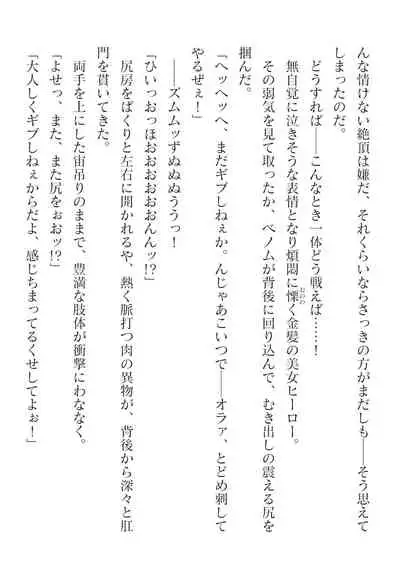 んな情けない絶頂は嫌だ、それくらいならさっきの方がまだしも――そう思えて
しまったのだ。
どうすれば――こんなとき一体どう戦えば……！
無自覚に泣きそうな表情となり煩悶に慄く金髪の美女ヒーロー。
その弱気を見て取ったか、ベノムが背後に回り込んで、むき出しの震える尻を
掴んだ。
「ヘッヘッヘ、まだギブしねぇか。んじゃあこいつで――オラァ、とどめ刺して
やるぜぇ！」
――ズムムッずぬぬぬううっ！
「ひいっおっほおおおおおおんんッ!?」
尻房をばくりと左右に開かれるや、熱く脈打つ肉の異物が、背後から深々と肛
門を貫いてきた。
両手を上にした宙吊りのままで、豊満な肢体が衝撃にわななく。
「よせっ、また、また尻をぉおッ!?」
「大人しくギブしねぇからだよ、感じちまってるくせしてよぉ！」